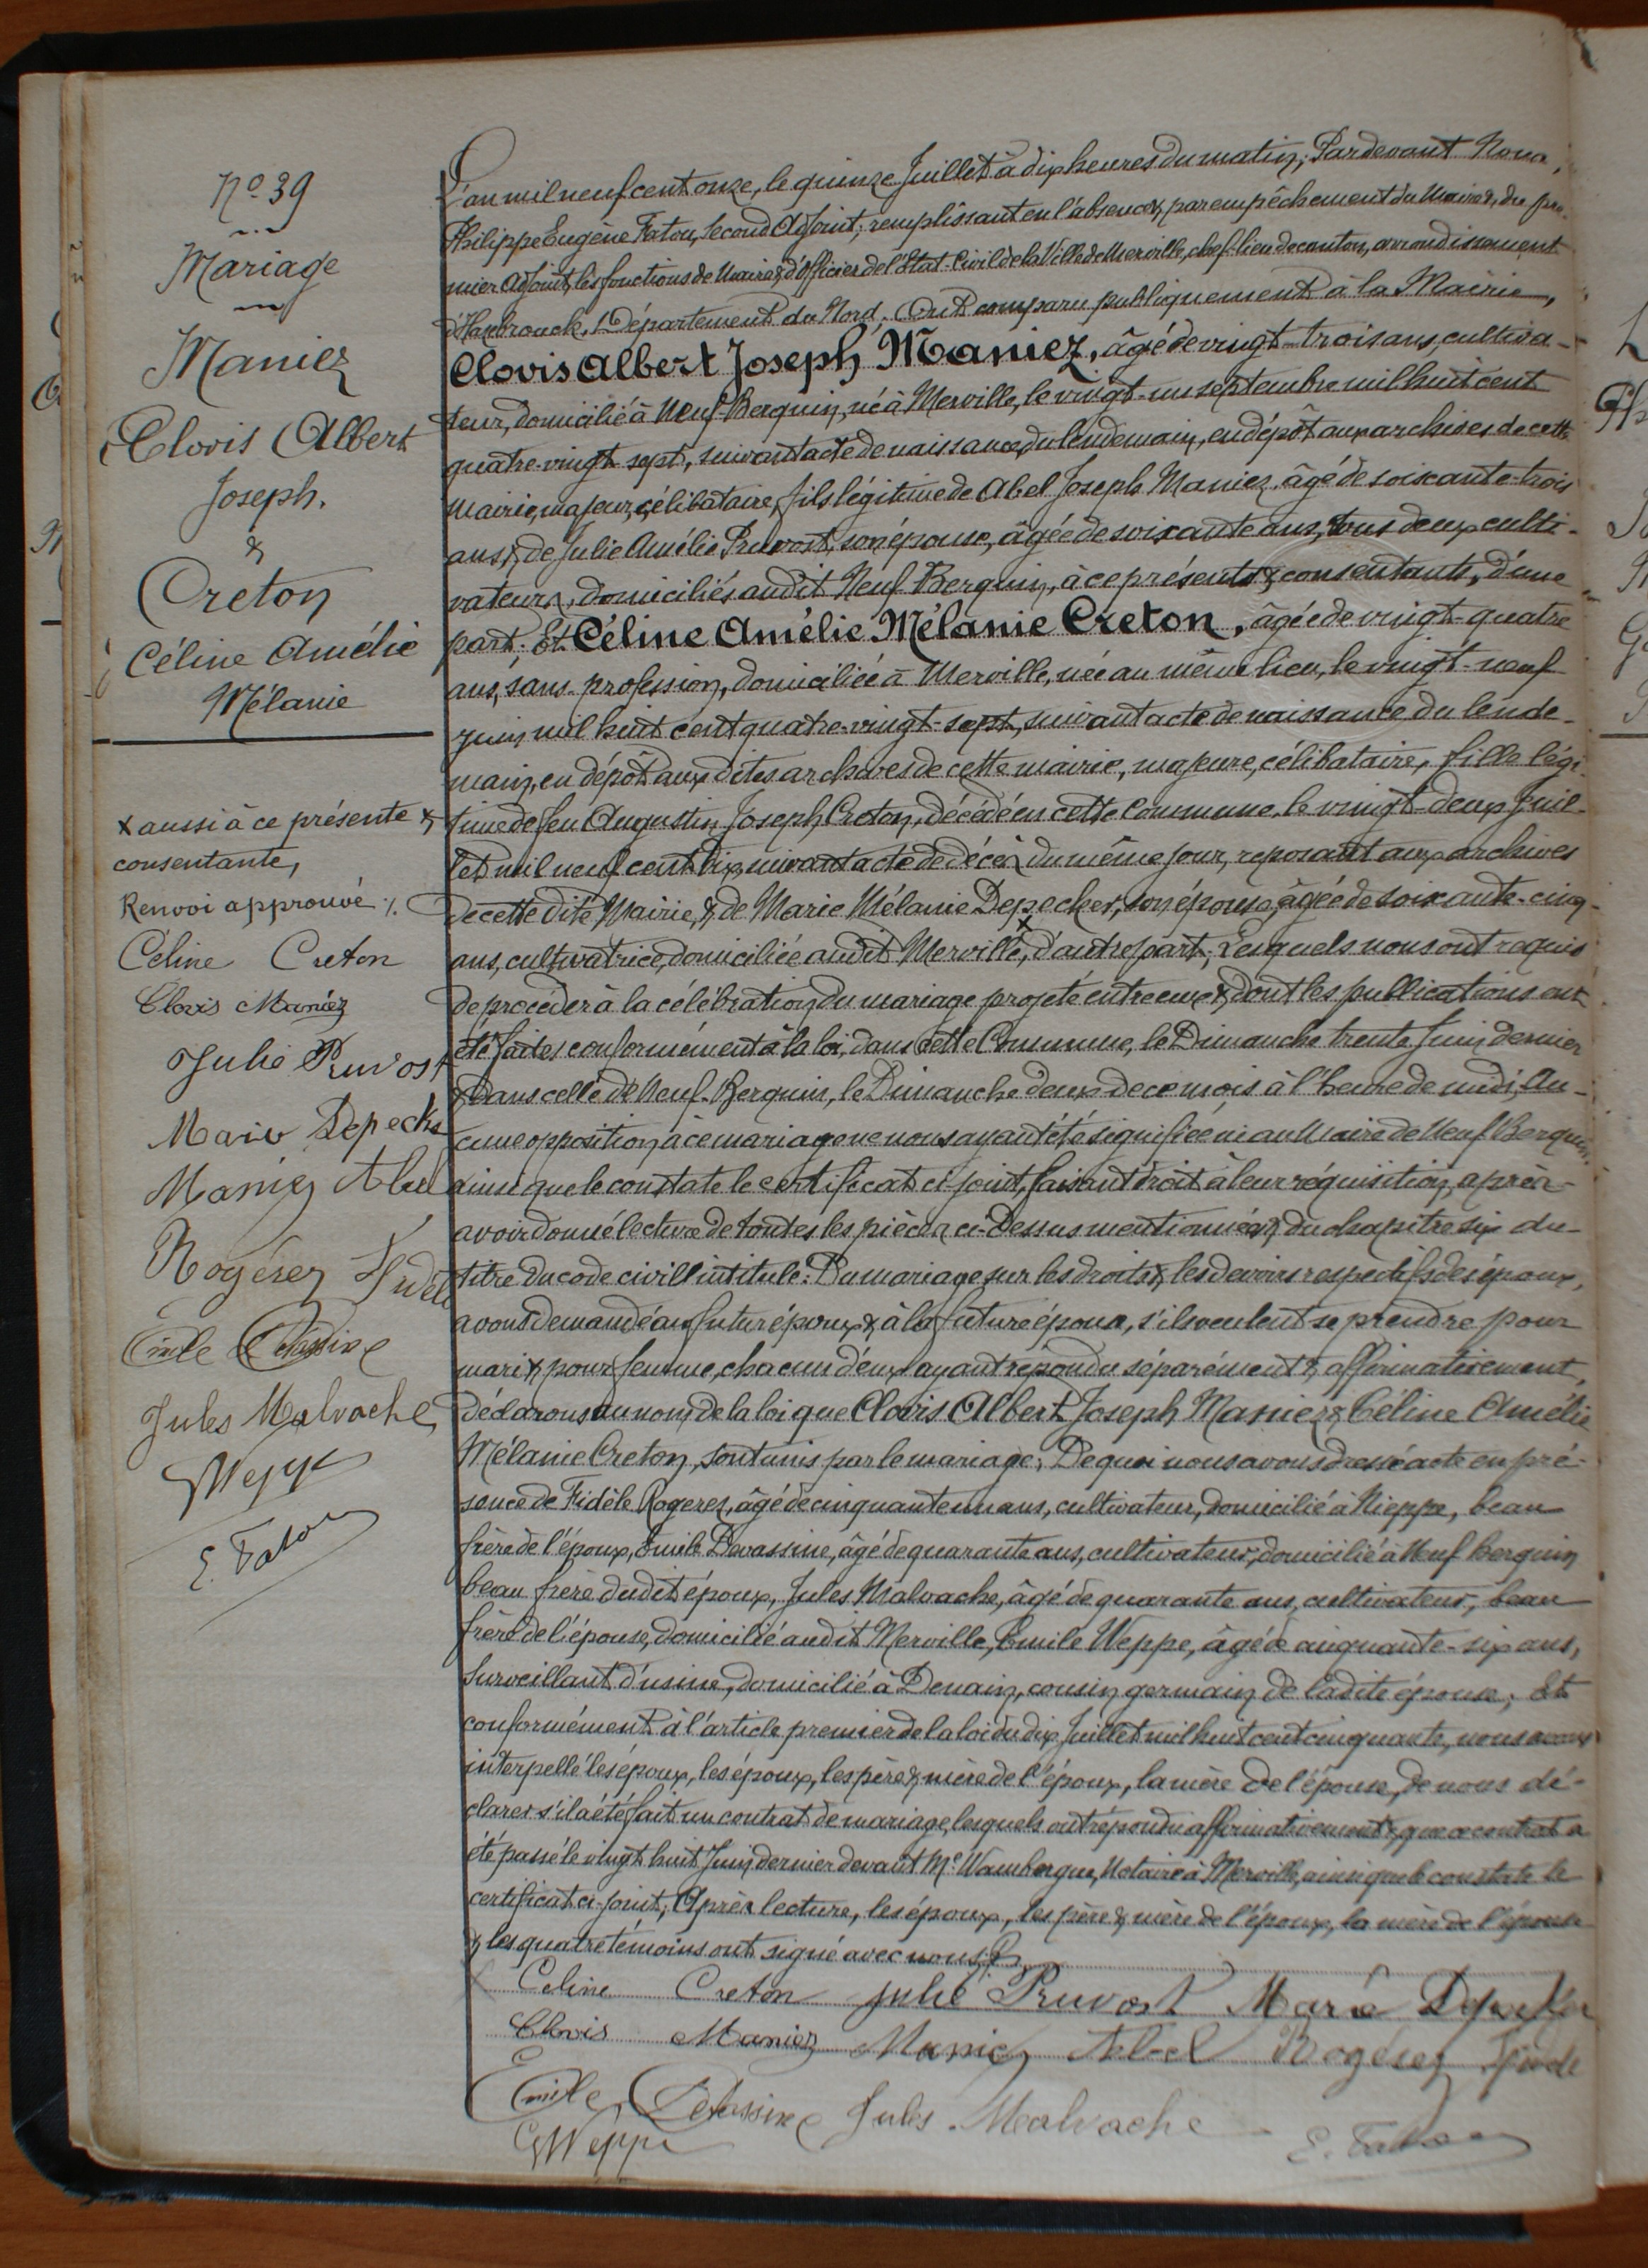 Nº 39
Mariage
Maniez
Clovis Albert
Joseph.
&
Creton
Céline Amélie
Mélanie
x aussi à ce présente &
consentante,
Renvoi approuvé ./.
Céline Creton
Clovis Maniez
Julie Pruvost
Marie Depecker
Maniez Abel
Rogérez Fidèle
Emile Devassine
Jules Malvache
E Weppe
E. Fatou
L'an mil neuf cent onze, le quinze Juillet à dix heures du matin; Pardevant Nous,
Philippe Eugène Fatou, Second Adjoint, remplissant en l'absence, par empêchement du Maire & du pre-
mier Adjoint, les fonctions de Maire & d'Officier de l'État-Civil de la Ville de Merville, chef-lieu de canton, arrondissement
d'Hazebrouck, Département du Nord. Ont comparu publiquement à la Mairie,
Clovis Albert Joseph Maniez, âgé de vingt-trois ans, cultiva-
teur, domicilié à Neuf-Berquin, né à Merville, le vingt-un septembre mil huit cent
quatre-vingt-sept, suivant acte de naissance du lendemain, en dépôt aux archives de cette
Mairie, majeur, célibataire, fils légitime de Abel Joseph Maniez, âgé de soixante-trois
ans, & de Julie Amélie Pruvost, son épouse, âgée de soixante ans, tous deux culti-
vateurs, domiciliés audit Neuf-Berquin, à ce présents & consentants, d'une
part; Et Céline Amélie Mélanie Creton, âgée de vingt-quatre
ans, sans profession, domiciliée à Merville, née au même lieu, le vingt-neuf
juin mil huit cent quatre-vingt-sept, suivant acte de naissance du lende-
main, en dépôt aux dites archives de cette mairie, majeure, célibataire, fille légi-
time de feu Augustin Joseph Creton, décédé en cette Commune, le vingt-deux Juil-
let mil neuf cent dix, suivant acte de décès du même jour, reposant aux archives
de cette dite Mairie, & de Marie Mélanie Depecker, son épouse, âgée de soixante-cinq
ans, cultivatrice, domiciliée audit Merville, x d'autre part; Lesquels nous ont requis
de procéder à la célébration du mariage projeté entre eux & dont les publications ont
été faites conformément à la loi, dans cette Commune, le Dimanche trente Juin dernier
& dans celle de Neuf-Berquin, le Dimanche deux de ce mois à l'heure de midi. Au-
cune opposition à ce mariage ne nous ayant été signifiée ni au Maire de Neuf Berquin,
ainsi que le constate le certificat ci-joint, faisant droit à leur réquisition, après
avoir donné lecture de toutes les pièces ci-Dessus mentionnées & du chapitre six du
titre du code civil intitulé: Du mariage sur les droits & les devoirs respectifs des époux,
avons demandé au futur époux & à la future épouse, s'ils veulent se prendre pour
mari & pour femme, chacun d'eux ayant répondu séparément & affirmativement,
Déclarons au nom de la loi que Clovis Albert Joseph Maniez & Céline Amélie
Mélanie Creton, sont unis par le mariage. De quoi nous avons dressé acte en pré-
sence de Fidèle Rogerez, âgé de cinquante-un ans, cultivateur, domicilié à Nieppe, beau
frère de l'époux, Emile Devassine, âgé de quarante ans, cultivateur, domicilié à Neuf Berquin
beau frère dudit époux, Jules Malvache, âgé de quarante ans, cultivateur, beau
frère de l'épouse, domicilié audit Merville, Emile Weppe, âgé de cinquante-six ans,
Surveillant d'usine, domicilié à Denain, cousin germain de ladite épouse; Et
conformément à l'article premier de la loi du dix Juillet mil huit cent cinquante, nous avons
interpellé les époux, les époux, les père & mère de l'époux, la mère de l'épouse, de nous dé-
clarer s'il a été fait un contrat de mariage, lesquels ont répondu affirmativement & que ce contrat a
été passé le vingt huit Juin dernier devant Me Wambergue, Notaire à Merville, ainsi que le constate le
certificat ci-joint; Après lecture, les époux, les père & mère de l'époux, la mère de l'épouse
& les quatre témoins ont signé avec nous.
Celine Creton Julie Pruvost Marie Depecker
Clovis Maniez Maniez Abel Rogérez Fidèle
Emile Devassine Jules Malvache
E Weppe E. Fatou